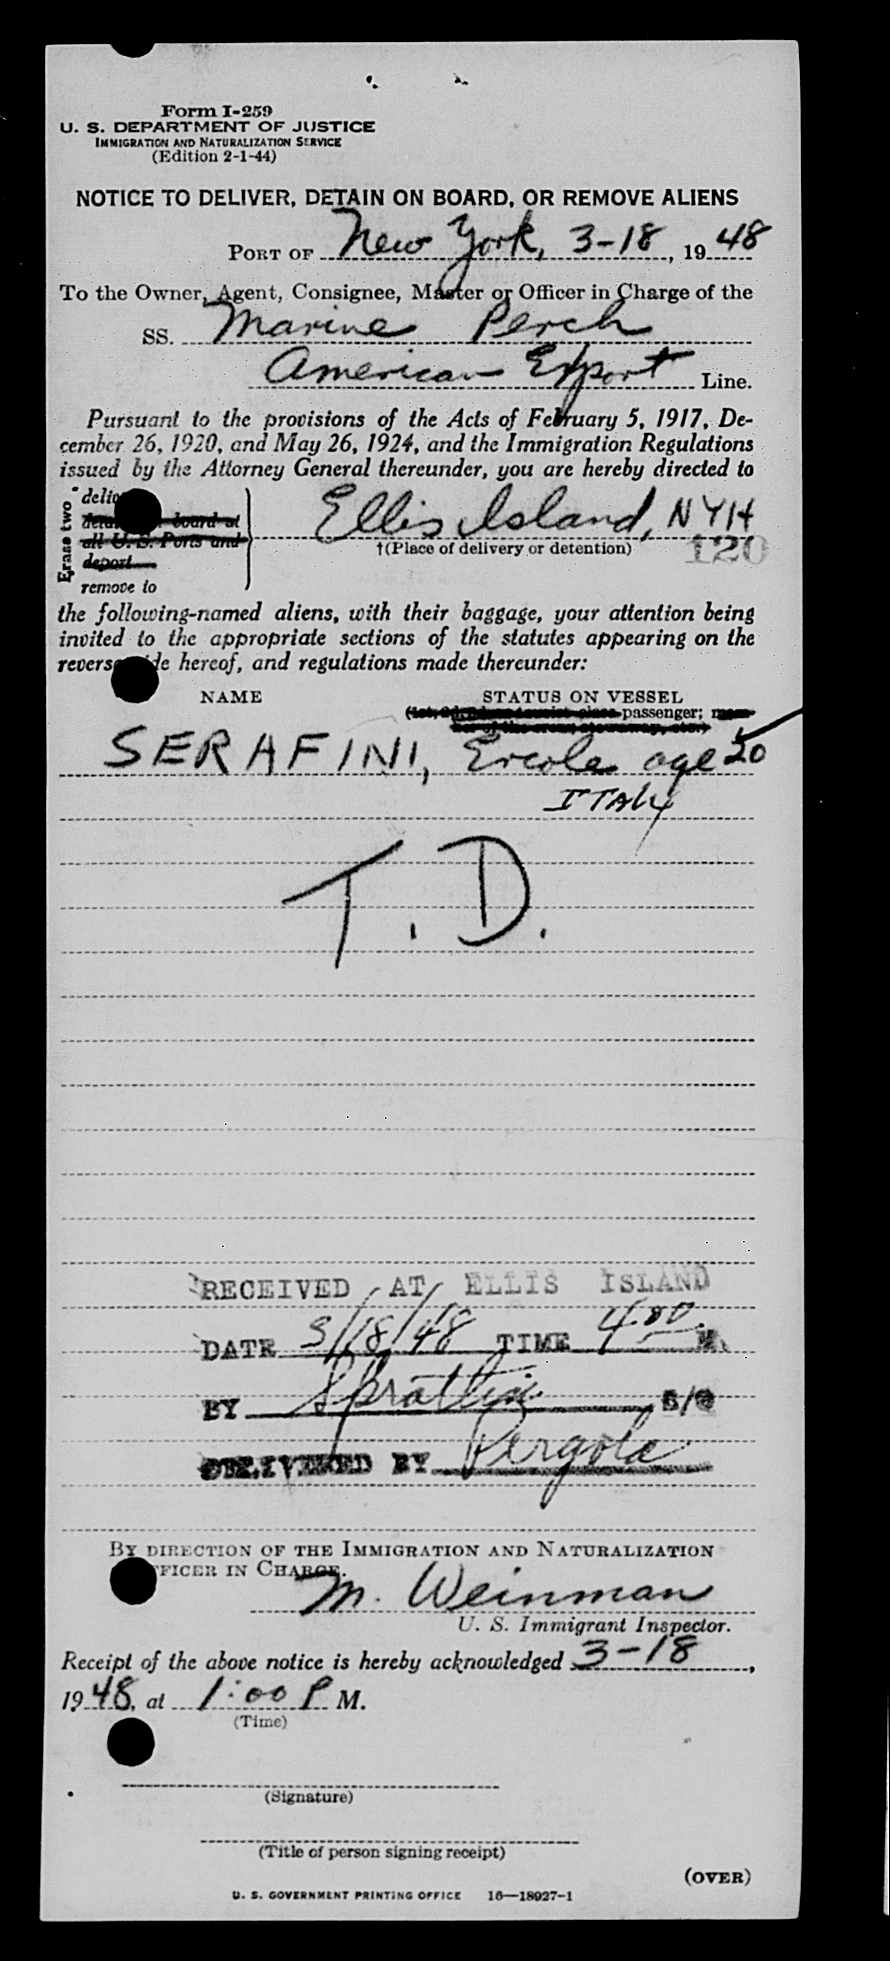 Form I-259
U. S. DEPARTMENT OF JUSTICE
IMMIGRATION AND NATURALIZATION SERVICE
(Edition 2-1-44)
NOTICE TO DELIVER, DETAIN ON BOARD, OR REMOVE ALIENS
PORT OF New York, 3-18, 1948
To the Owner, Agent, Consignee, Master or Officer in Charge of the
SS. Marine Perch
American Export Line.
Pursuant to the provisions of the Acts of February 5, 1917, De-
cember 26, 1920, and May 26, 1924, and the Immigration Regulations
issued by the Attorney General thereunder, you are hereby directed to
Erase two
board at
all U. S. Ports and
deport
remove to
Ellis Island, NYH
†(Place of delivery or detention)
120
the following-named aliens, with their baggage, your attention being
invited to the appropriate sections of the statutes appearing on the
hereof, and regulations made thereunder:
NAME STATUS ON VESSEL
passenger;
SERAFINI, Ercole age 20
ITALY
T. D.
RECEIVED AT ELLIS ISLAND
DATE 3/18/48 TIME 4 00 M
BY
DELIVERED BY Pergola
BY DIRECTION OF THE IMMIGRATION AND NATURALIZATION
IN CHARGE.
M. Weinman
U. S. Immigrant Inspector.
Receipt of the above notice is hereby acknowledged 3-18,
1948, at 1:00 P M.
(Time)
(Signature)
(Title of person signing receipt)
(OVER)
U. S. GOVERNMENT PRINTING OFFICE 16—18927-1